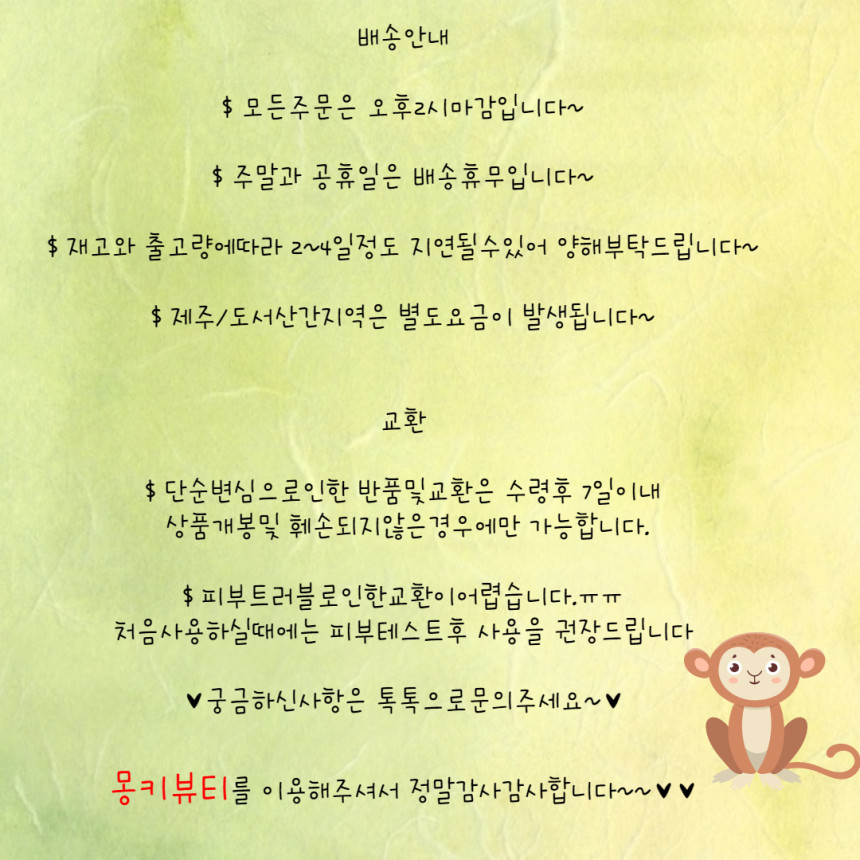 배송안내
$ 모든주문은 오후2시마감입니다~
$ 주말과 공휴일은 배송휴무입니다~
$ 재고와 출고량에따라 2~4일정도 지연될수있어 양해부탁드립니다~
$ 제주/도서산간지역은 별도요금이 발생됩니다~
교환
$ 단순변심으로인한 반품및교환은 수령후 7일이내
상품개봉및 훼손되지않은경우에만 가능합니다.
$ 피부트러블로인한교환이어렵습니다.ㅠㅠ
처음사용하실때에는 피부테스트후 사용을 권장드립니다
♥궁금하신사항은 톡톡으로문의주세요~♥
몽키뷰티를 이용해주셔서 정말감사감사합니다~~♥♥